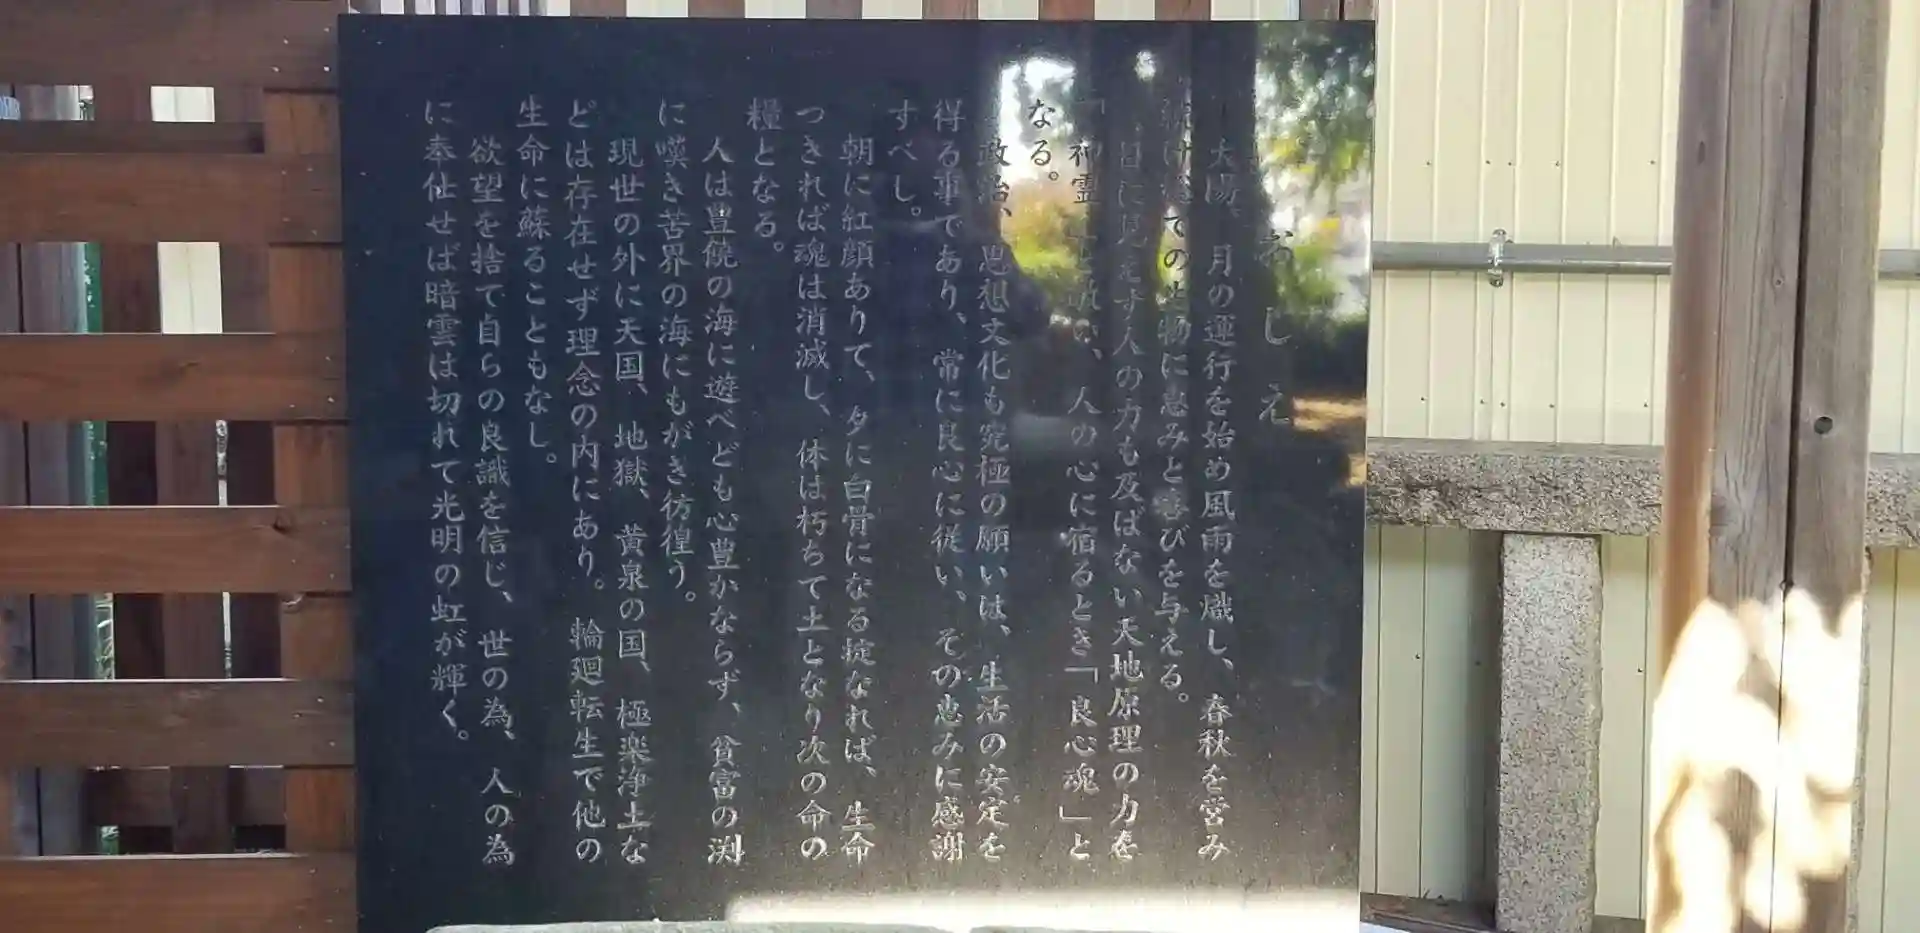 おしえ
太陽、月の運行を始め風雨を熾し、春秋を営み
続け総ての生物に恵みと喜びを与える。
目に見えず人の力も及ばない天地原理の力を
「神霊」と敬い、人の心に宿るとき「良心魂」と
なる。
政治、思想文化も究極の願いは、生活の安定を
得る事であり、常に良心に従い、その恵みに感謝
すべし。
朝に紅顔ありて、夕に白骨になる掟なれば、生命
つきれば魂は消滅し、体は朽ちて土となり次の命の
糧となる。
人は豊饒の海に遊べども心豊かならず、貧富の渕
に嘆き苦界の海にもがき彷徨う。
現世の外に天国、地獄、黄泉の国、極楽浄土な
どは存在せず理念の内にあり。輪廻転生で他の
生命に蘇ることもなし。
欲望を捨て自らの良識を信じ、世の為、人の為
に奉仕せば暗雲は切れて光明の虹が輝く。